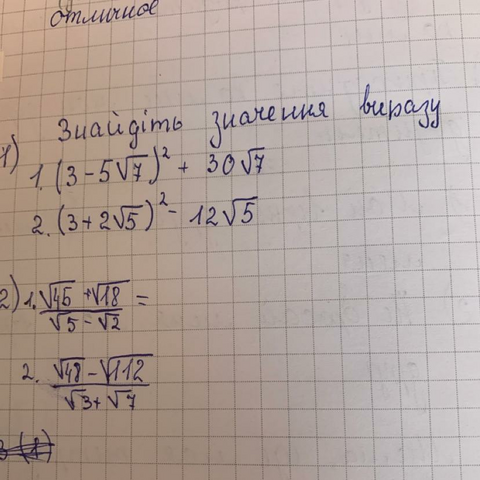 отличное
Знайдіть значення виразу
1)
1. (3 - 5√7)² + 30√7
2. (3 + 2√5)² - 12√5
2) 1. (√45 + √18)/(√5 - √2) =
2. (√48 - √112)/(√3 + √7)